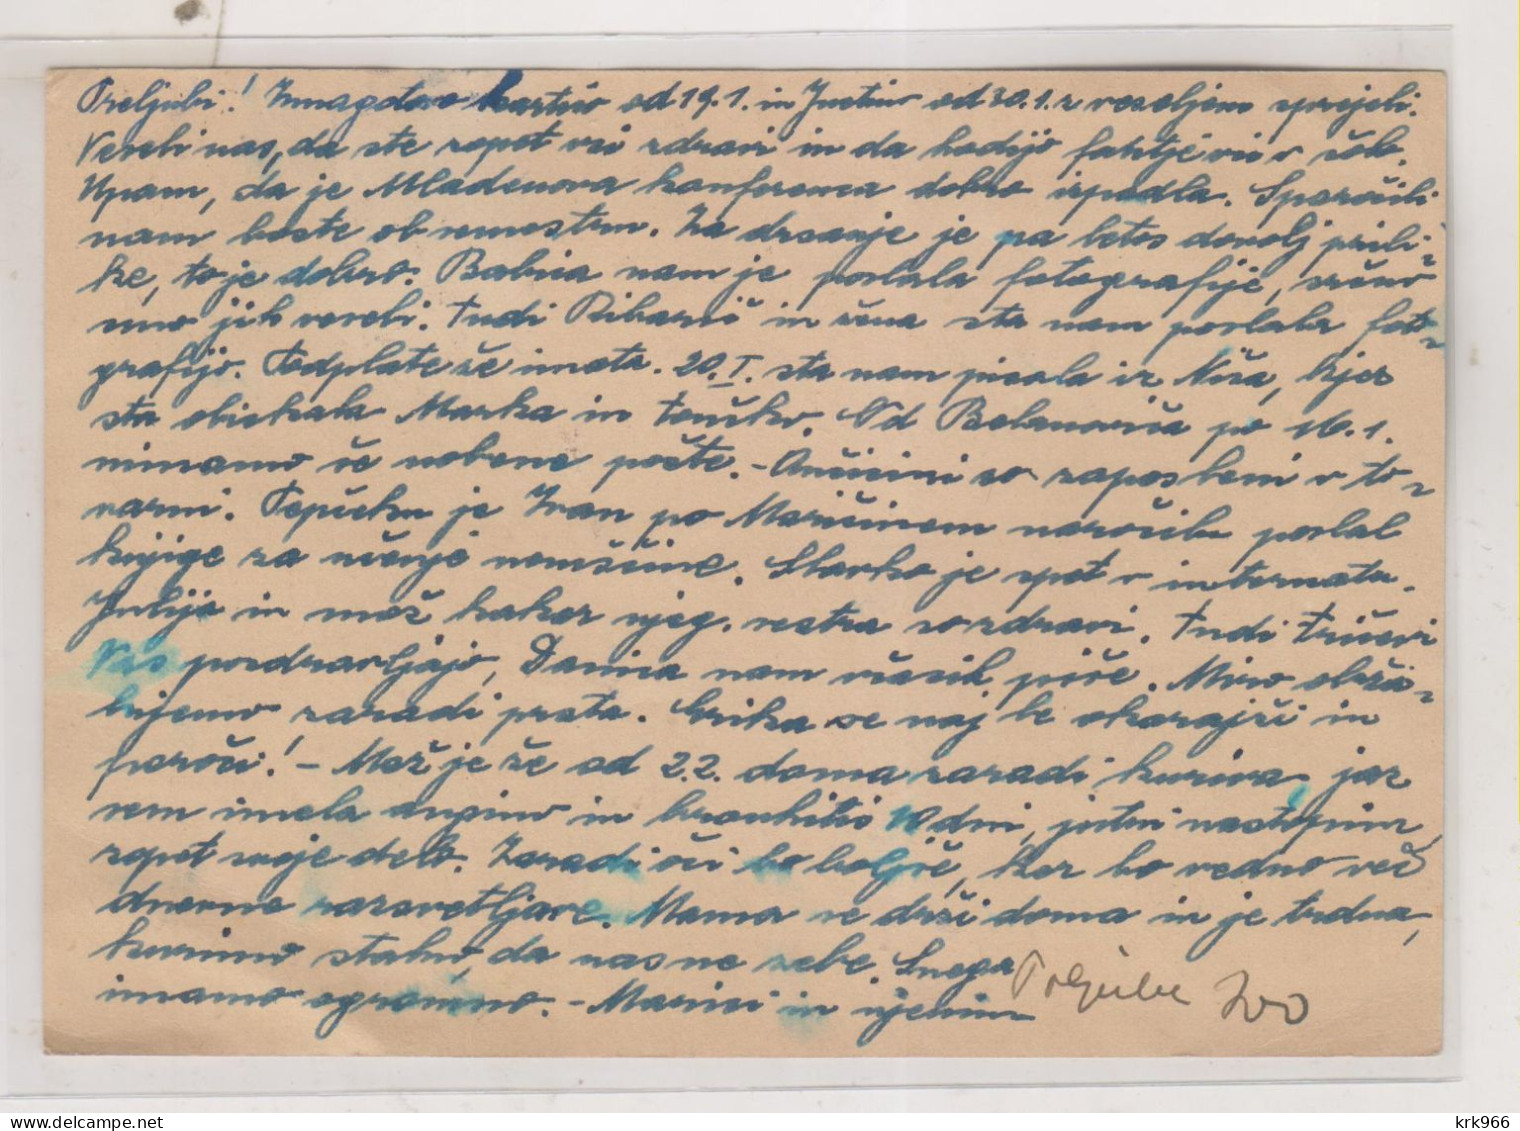 Preljubi! Zmagotovo kartico od 19.1. in Justino od 30.1. z veseljem sprejeli.
Veseli nas, da ste zopet vsi zdravi in da hodijo fantje vsi v šolo.
Upam, da je Mladenova konferenca dobro izpadla. Sporočili
nam boste ob nemostem. Za drsanje je pa letos dovolj prili-
ke, to je dobro. Babica nam je poslala fotografije, srčno
smo jih veseli. Tudi Ribarič in žena sta nam poslala foto-
grafijo. Podplate že imata. 20.I. sta nam pisala iz Niša, kjer
sta obiskala Marka in Tončko. Od Bolanoviča po 16.1.
nimamo še nobene pošte. - so zaposleni v to-
varni. Pepčku je Ivan po Maričinem naročilu poslal
knjige za učenje nemščine. Slavko je spet v internatu.
Julija in mož kakor njeg. sestra so zdravi. Tudi Tržičevi
Vas pozdravljajo, Danica nam včasih piše. Miro obža-
lujemo zaradi prsta. Erika se naj le okorajži in
poroči! - Mož je že od 2.2. doma zaradi kuriva, jaz
sem imela angino in bronhitis 10 dni, jutri nastopim
zopet svoje delo. Zaradi oči bo boljše, ker bo vedno več
dnevne razsvetljave. Mama se drži doma in je trdna,
kurimo stalno, da nas ne zebe. Snega
imamo ogromno. - Marici in njenim
Poljube Ivo
krk966